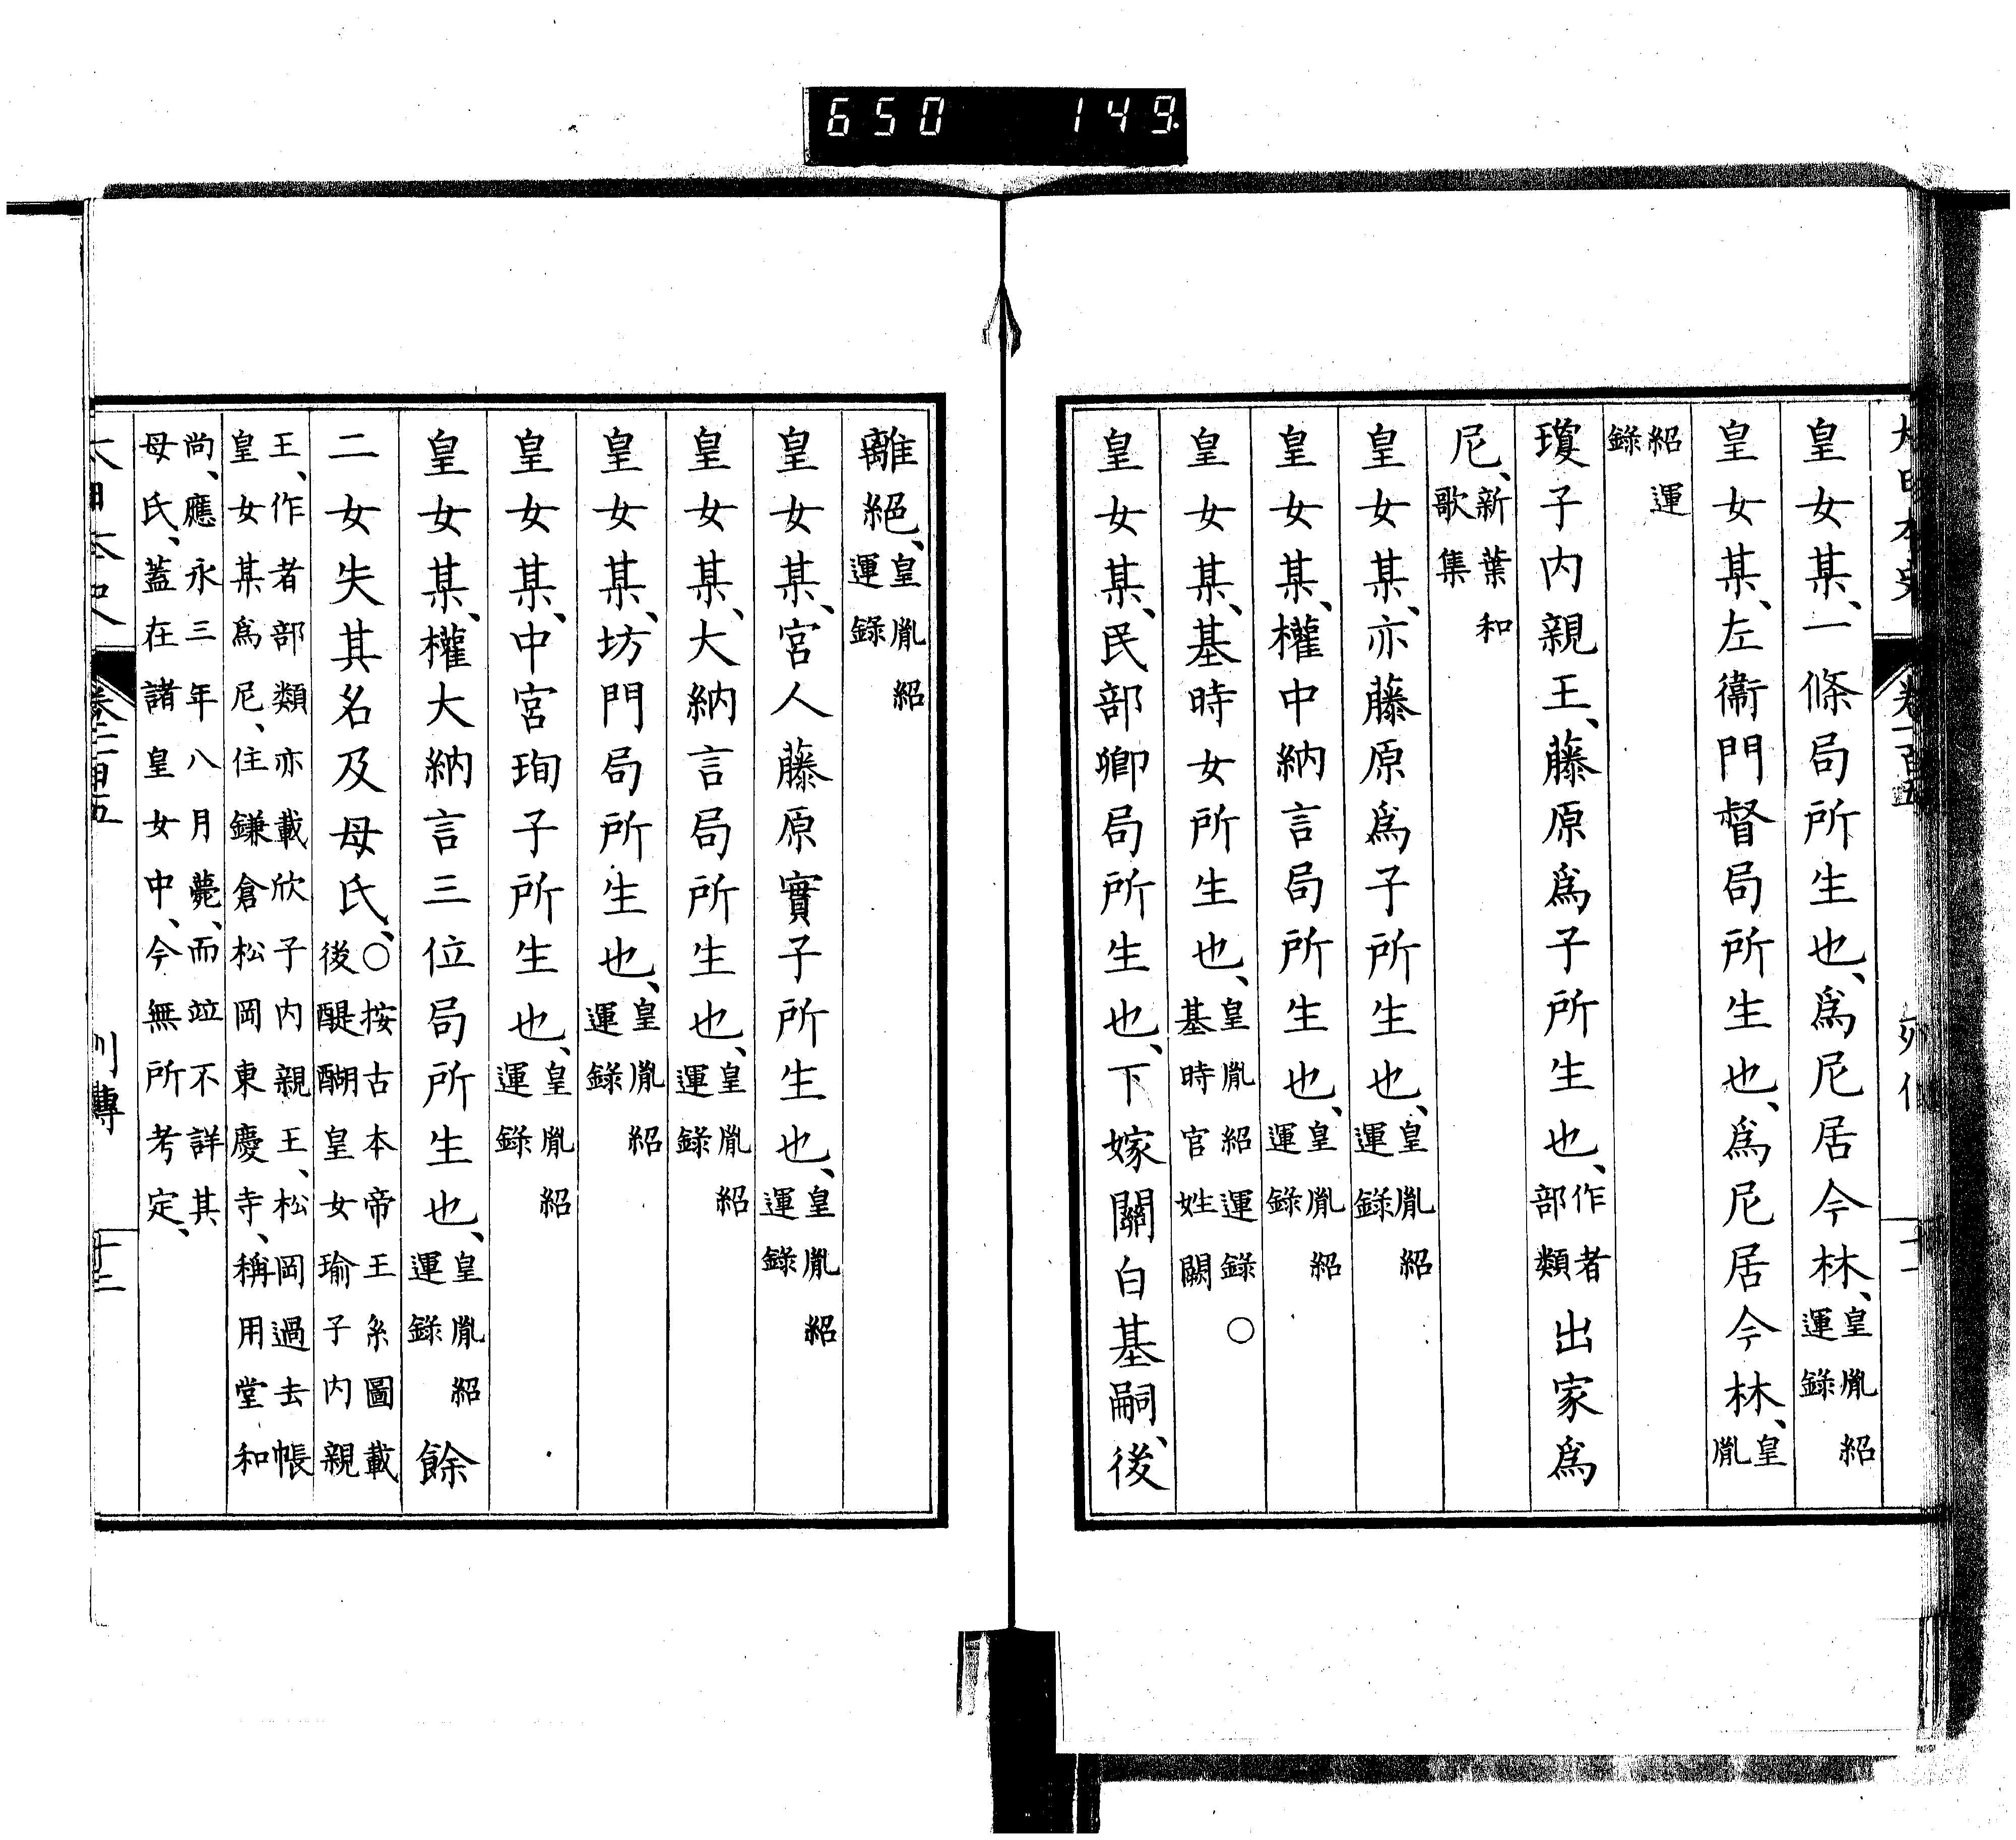 650 149.
大日本史 卷一百五 列傳 十一
皇女某、一條局所生也、爲尼居今林、皇胤紹運錄
皇女某、左衞門督局所生也、爲尼居今林、皇胤
紹運錄
瓊子內親王、藤原爲子所生也、作者部類出家爲
尼、新葉和歌集
皇女某、亦藤原爲子所生也、皇胤紹運錄
皇女某、權中納言局所生也、皇胤紹運錄
皇女某、基時女所生也、皇胤紹運錄○基時官姓闕
皇女某、民部卿局所生也、下嫁關白基嗣、後
離絕、皇胤紹運錄
皇女某、宮人藤原實子所生也、皇胤紹運錄
皇女某、大納言局所生也、皇胤紹運錄
皇女某、坊門局所生也、皇胤紹運錄
皇女某、中宮珣子所生也、皇胤紹運錄
皇女某、權大納言三位局所生也、皇胤紹運錄餘
二女失其名及母氏、○按古本帝王系圖載後醍醐皇女瑜子內親
王、作者部類亦載欣子內親王、松岡過去帳皇女某爲尼、住鎌倉松岡東慶寺、稱用堂和
尚、應永三年八月薨、而竝不詳其母氏、蓋在諸皇女中、今無所考定、
大日本史 卷一百五 列傳 十二